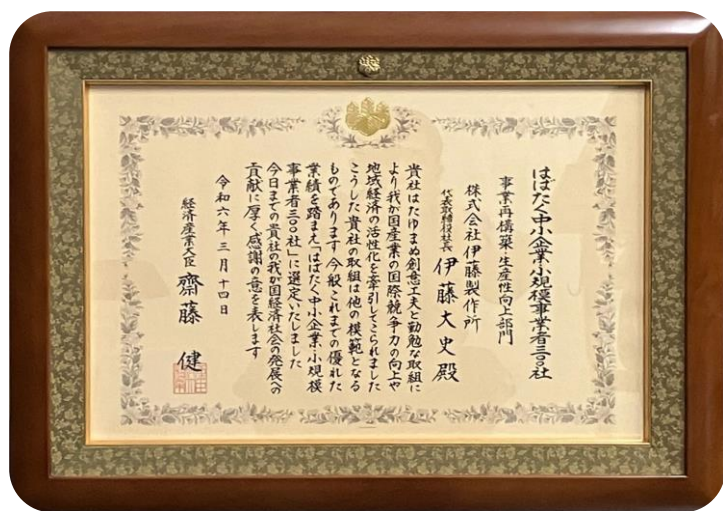 はばたく中小企業・小規模事業者三〇〇社
事業再構築・生産性向上部門
株式会社伊藤製作所
代表取締役社長 伊藤大史殿
貴社はたゆまぬ創意工夫と勤勉な取組に
より我が国産業の国際競争力の向上や
地域経済の活性化を牽引してこられました
こうした貴社の取組は他の模範となる
ものであります今般これまでの優れた
業績を踏まえ「はばたく中小企業・小規模
事業者三〇〇社」に選定いたしました
今日までの貴社の我が国経済社会の発展への
貢献に厚く感謝の意を表します
令和六年三月十四日
経済産業大臣 齋藤健